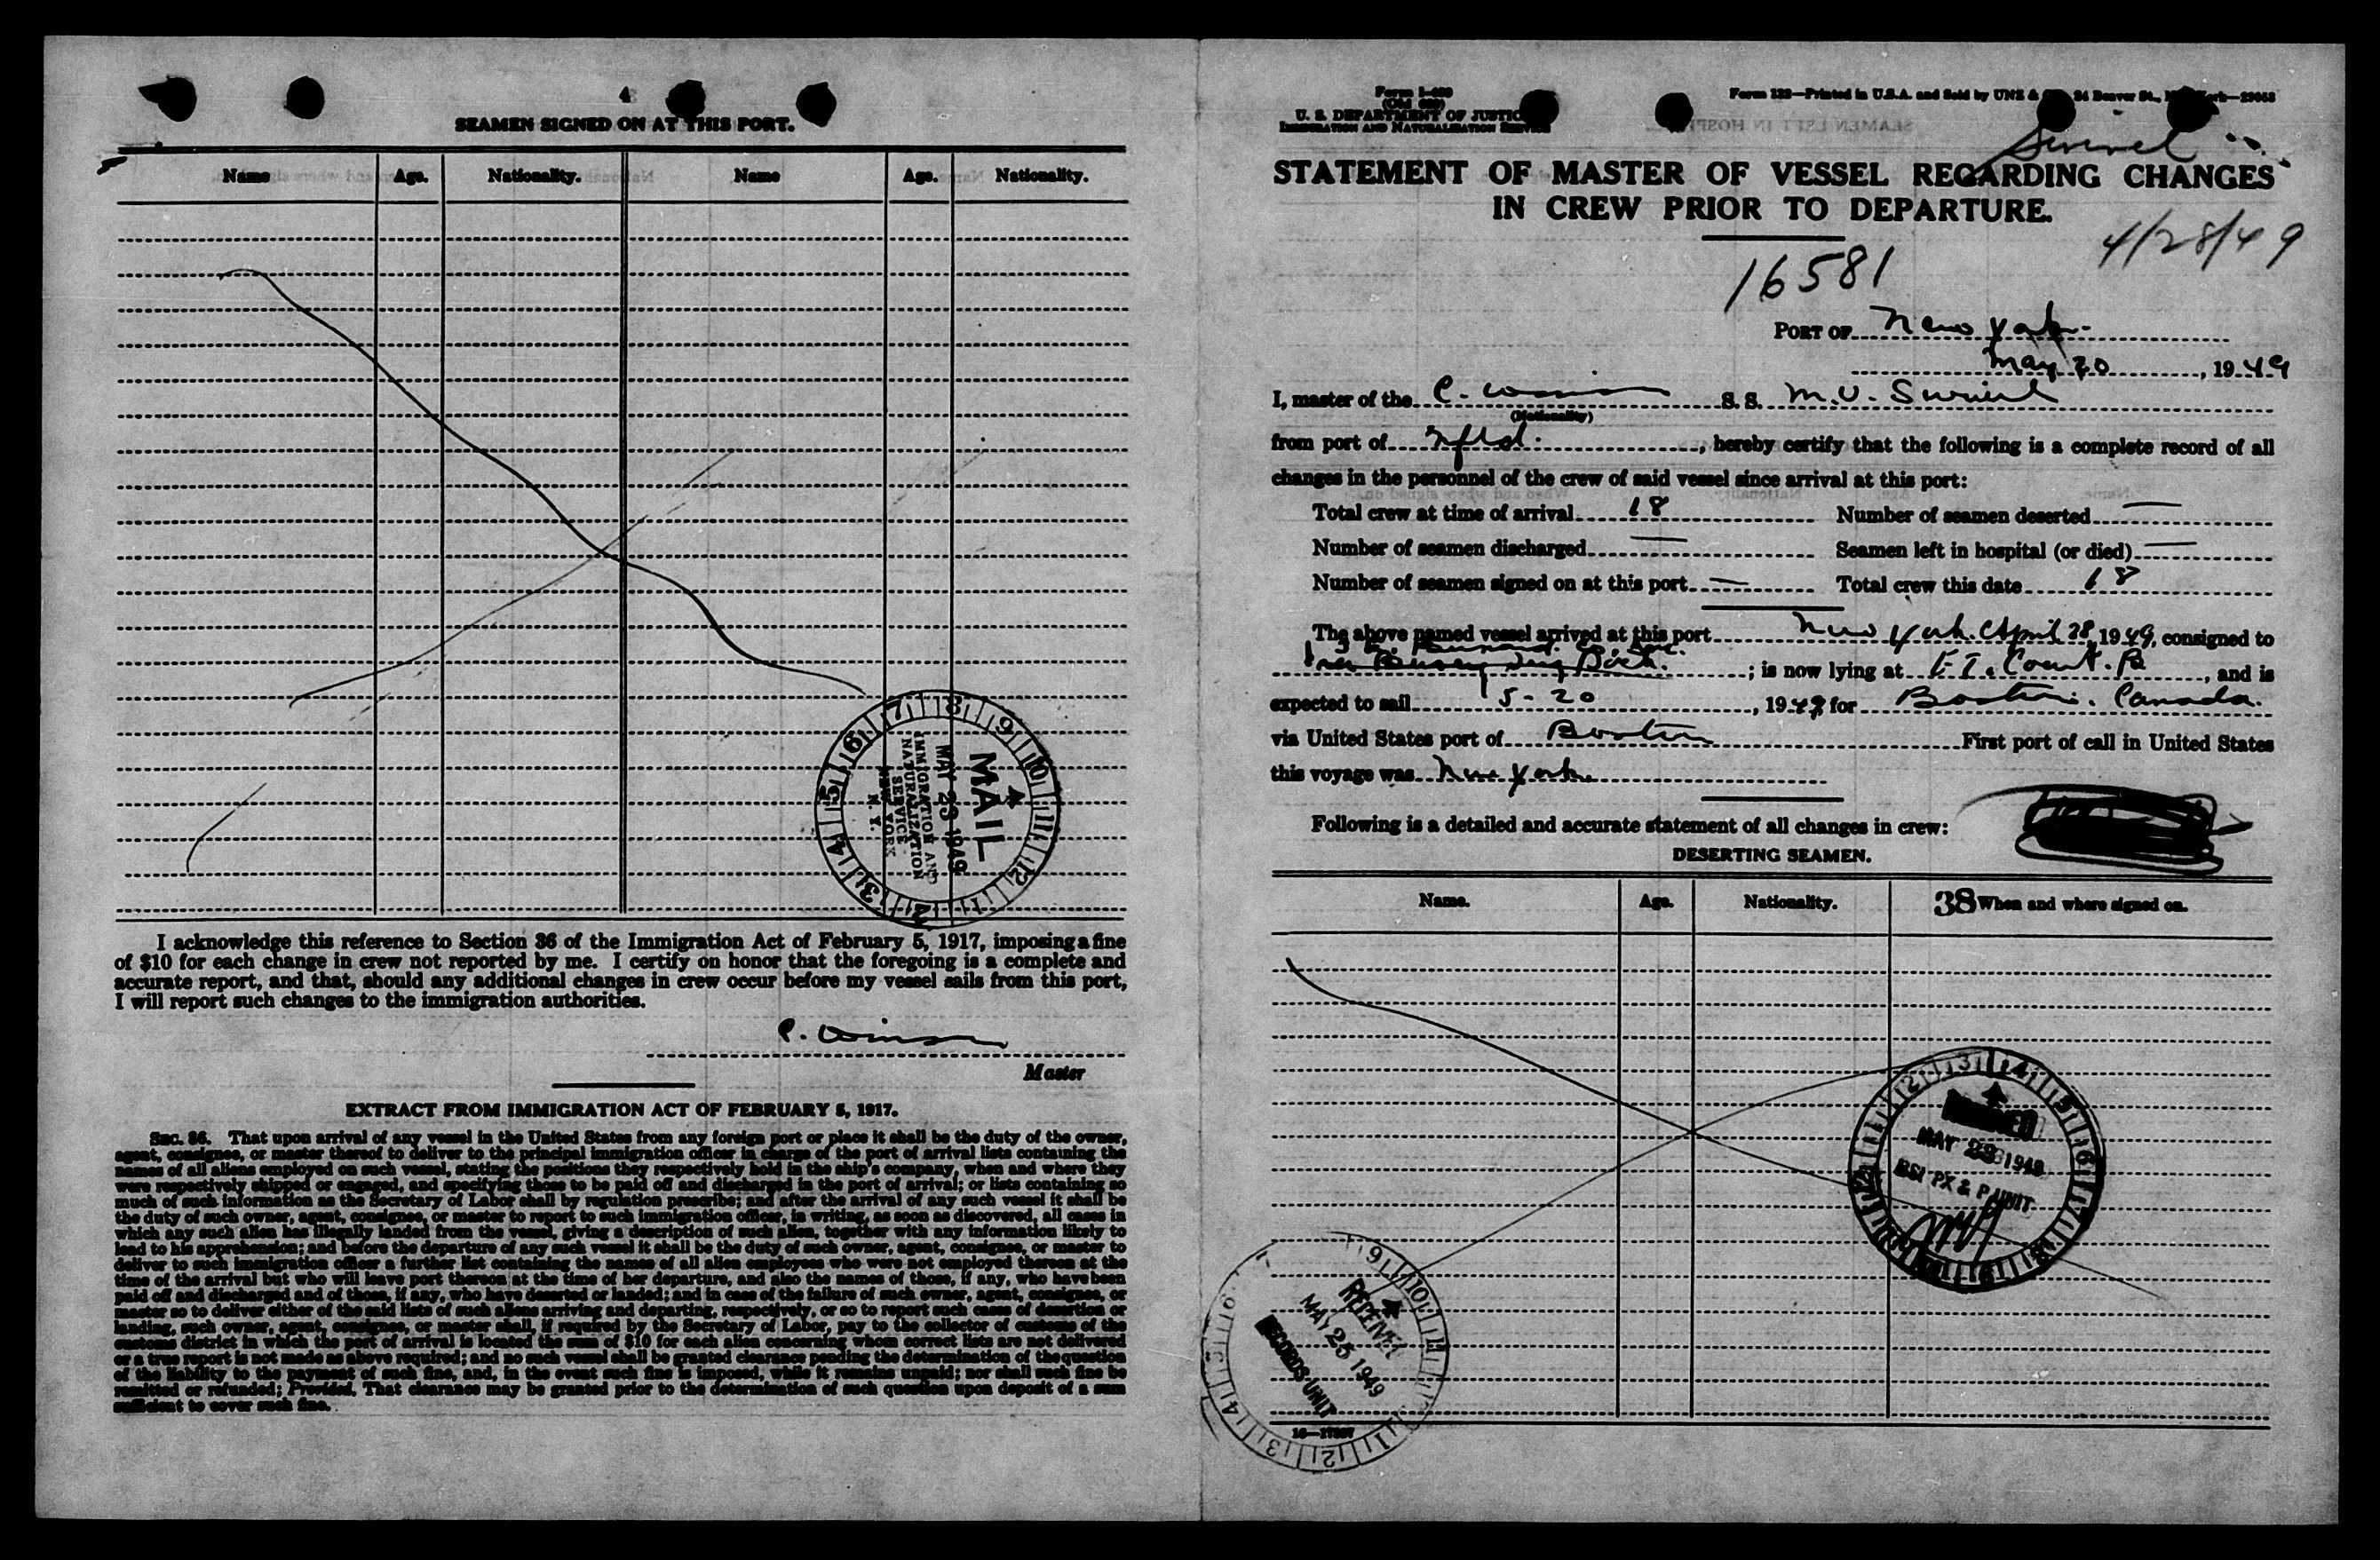 4
SEAMEN SIGNED ON AT THIS PORT.
Name Age. Nationality. Name Age. Nationality.
MAIL
MAY 23 1949
IMMIGRATION AND
NATURALIZATION
SERVICE
NEW YORK
N. Y.
I acknowledge this reference to Section 36 of the Immigration Act of February 5, 1917, imposing a fine
of $10 for each change in crew not reported by me. I certify on honor that the foregoing is a complete and
accurate report, and that, should any additional changes in crew occur before my vessel sails from this port,
I will report such changes to the immigration authorities.
C.
Master
EXTRACT FROM IMMIGRATION ACT OF FEBRUARY 5, 1917.
SEC. 36. That upon arrival of any vessel in the United States from any foreign port or place it shall be the duty of the owner,
agent, consignee, or master thereof to deliver to the principal immigration officer in charge of the port of arrival lists containing the
names of all aliens employed on such vessel, stating the positions they respectively hold in the ship's company, when and where they
were respectively shipped or engaged, and specifying those to be paid off and discharged in the port of arrival; or lists containing so
much of such information as the Secretary of Labor shall by regulation prescribe; and after the arrival of any such vessel it shall be
the duty of such owner, agent, consignee, or master to report to such immigration officer, in writing, as soon as discovered, all cases in
which any such alien has illegally landed from the vessel, giving a description of such alien, together with any information likely to
lead to his apprehension; and before the departure of any such vessel it shall be the duty of such owner, agent, consignee, or master to
deliver to such immigration officer a further list containing the names of all alien employees who were not employed thereon at the
time of the arrival but who will leave port thereon at the time of her departure, and also the names of those, if any, who have been
paid off and discharged and of those, if any, who have deserted or landed; and in case of the failure of such owner, agent, consignee, or
master so to deliver either of the said lists of such aliens arriving and departing, respectively, or so to report such cases of desertion or
landing, such owner, agent, consignee, or master shall, if required by the Secretary of Labor, pay to the collector of customs of the
customs district in which the port of arrival is located the sum of $10 for each alien concerning whom correct lists are not delivered
or a true report is not made as above required; and no such vessel shall be granted clearance pending the determination of the question
of the liability to the payment of such fine, and, in the event such fine is imposed, while it remains unpaid; nor shall such fine be
remitted or refunded; Provided, That clearance may be granted prior to the determination of such question upon deposit of a sum
sufficient to cover such fine.
U. S. DEPARTMENT OF JUSTICE
IMMIGRATION AND NATURALIZATION SERVICE
Form 132—Printed in U.S.A. and Sold by UNZ & 24 Beaver St.,
STATEMENT OF MASTER OF VESSEL REGARDING CHANGES
IN CREW PRIOR TO DEPARTURE.
4/28/49
16581
PORT OF New York
May 20, 1949
I, master of the C. S. S. M.V.
(Nationality)
from port of Nfld., hereby certify that the following is a complete record of all
changes in the personnel of the crew of said vessel since arrival at this port:
Total crew at time of arrival 18 Number of seamen deserted —
Number of seamen discharged — Seamen left in hospital (or died) —
Number of seamen signed on at this port — Total crew this date 18
The above named vessel arrived at this port New York April 28, 1949, consigned to
; is now lying at , and is
expected to sail 5-20, 1949 for Boston. Canada.
via United States port of Boston First port of call in United States
this voyage was New York.
Following is a detailed and accurate statement of all changes in crew:
DESERTING SEAMEN.
Name. Age. Nationality. 38 When and where signed on.
MAY 23 1949
BSI PX & P UNIT
RECEIVED
MAY 25 1949
RECORDS UNIT